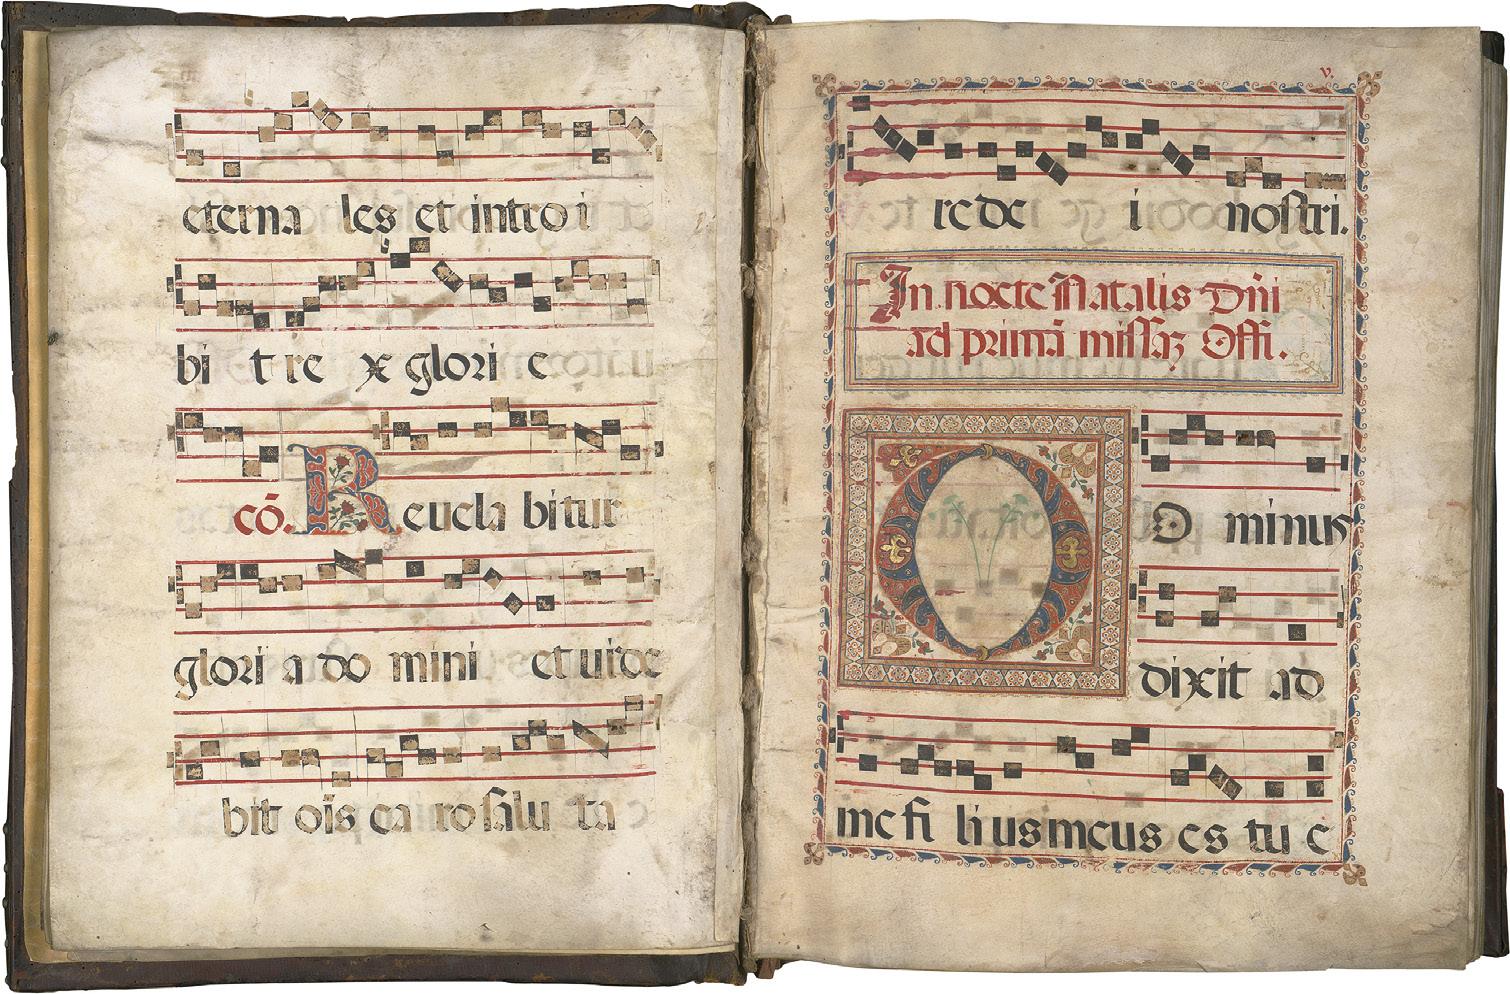 eterna les et intro i
bi t re x glori e
cō. Reuela bitur
glori a do mini et uide
bit oīs ca ro salu ta
v.
re de i nostri.
In nocte Natalis Dn̄i
ad primā missaꝫ Offi.
O D minus
dixit ad
me fi li us meus es tu e